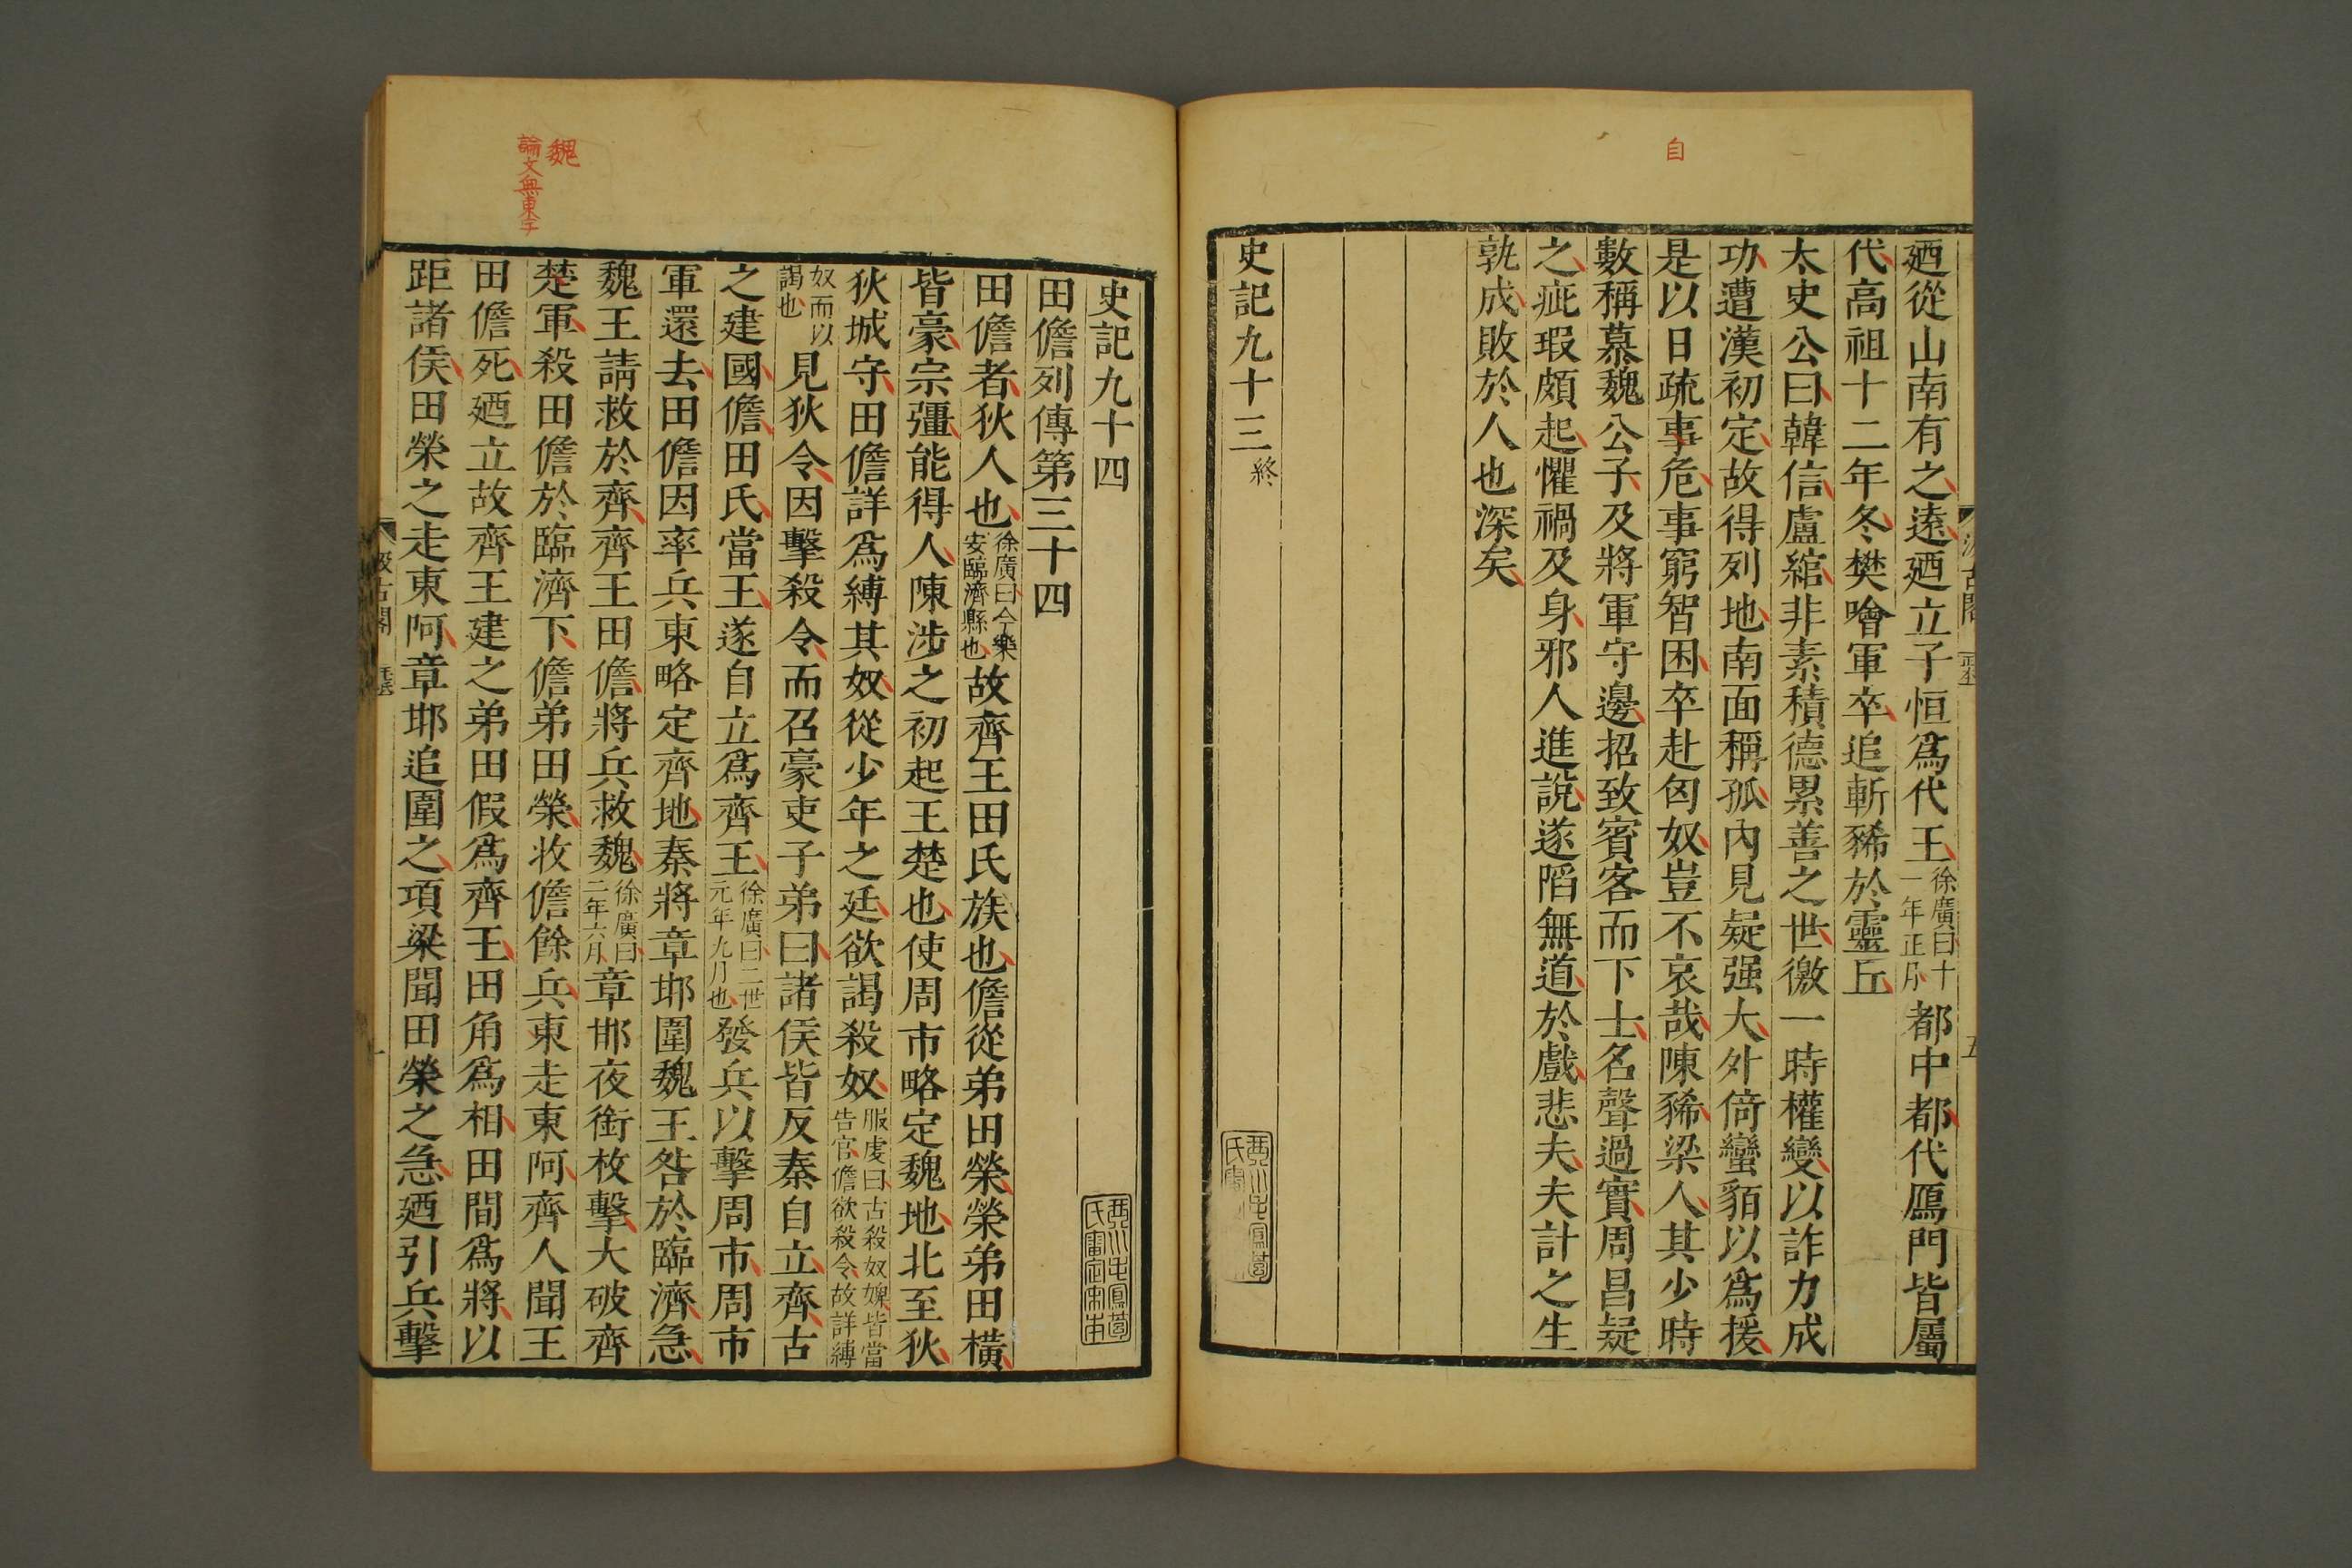 自
廼從山南有之遠廼立子恒爲代王徐廣曰十一年正月都中都代鴈門皆屬
代高祖十二年冬樊噲軍卒追斬豨於靈丘
太史公曰韓信盧綰非素積德累善之世徼一時權變以詐力成
功遭漢初定故得列地南面稱孤內見疑强大外倚蠻貊以爲援
是以日疏事危事窮智困卒赴匈奴豈不哀哉陳豨梁人其少時
數稱慕魏公子及將軍守邊招致賓客而下士名聲過實周昌疑
之疵瑕頗起懼禍及身邪人進說遂陷無道於戲悲夫夫計之生
孰成敗於人也深矣
史記九十三終
史記九十四
田儋列傳第三十四
田儋者狄人也徐廣曰今樂安臨濟縣也故齊王田氏族也儋從弟田榮榮弟田橫
皆豪宗彊能得人陳涉之初起王楚也使周市略定魏地北至狄
狄城守田儋詳爲縛其奴從少年之廷欲謁殺奴服虔曰古殺奴婢皆當告官儋欲殺令故詳縛
奴而以謁也見狄令因擊殺令而召豪吏子弟曰諸侯皆反秦自立齊古
之建國儋田氏當王遂自立爲齊王徐廣曰二世元年九月也發兵以擊周市周市
軍還去田儋因率兵東略定齊地秦將章邯圍魏王咎於臨濟急
魏王請救於齊齊王田儋將兵救魏徐廣曰二年六月章邯夜銜枚擊大破齊
楚軍殺田儋於臨濟下儋弟田榮收儋餘兵東走東阿齊人聞王
田儋死廼立故齊王建之弟田假爲齊王田角爲相田間爲將以
距諸侯田榮之走東阿章邯追圍之項梁聞田榮之急廼引兵擊
魏
論文無東字
汲古閣